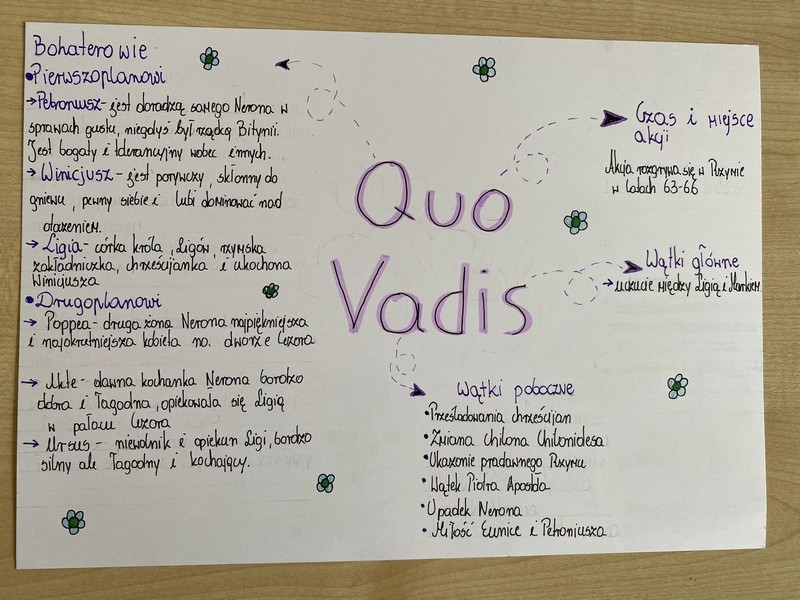 Bohaterowie
• Pierwszoplanowi
→ Petroniusz - jest doradzą samego Nerona w
sprawach gustu, niegdyś był rządką Bitynii.
Jest bogaty i tolerancyjny wobec innych.
→ Winicjusz - jest porywczy, skłonny do
gniewu, pewny siebie i lubi dominować nad
otoczeniem.
→ Ligia - córka króla, Ligów, rzymska
zakładniczka, chrześcijanka i ukochana
Winicjusza
• Drugoplanowi
→ Poppea - druga żona Nerona najpiękniejsza
i najokrutniejsza kobieta na dworze Cezara
→ Akte - dawna kochanka Nerona bardzo
dobra i łagodna, opiekowała się Ligią
w pałacu Cezara
→ Ursus - niewolnik i opiekun Ligi, bardzo
silny ale łagodny i kochający.
Quo
Vadis
Czas i miejsce
akcji
Akcja rozgrywa się w Rzymie
w latach 63-66
Wątki główne
→ uczucie między Ligią i Markiem
Wątki poboczne
• Prześladowania chrześcijan
• Zmiana Chilona Chilonidesa
• Ukazanie pradawnego Rzymu
• Wątek Piotra Apostoła
• Upadek Nerona
• Miłość Eunice i Petroniusza